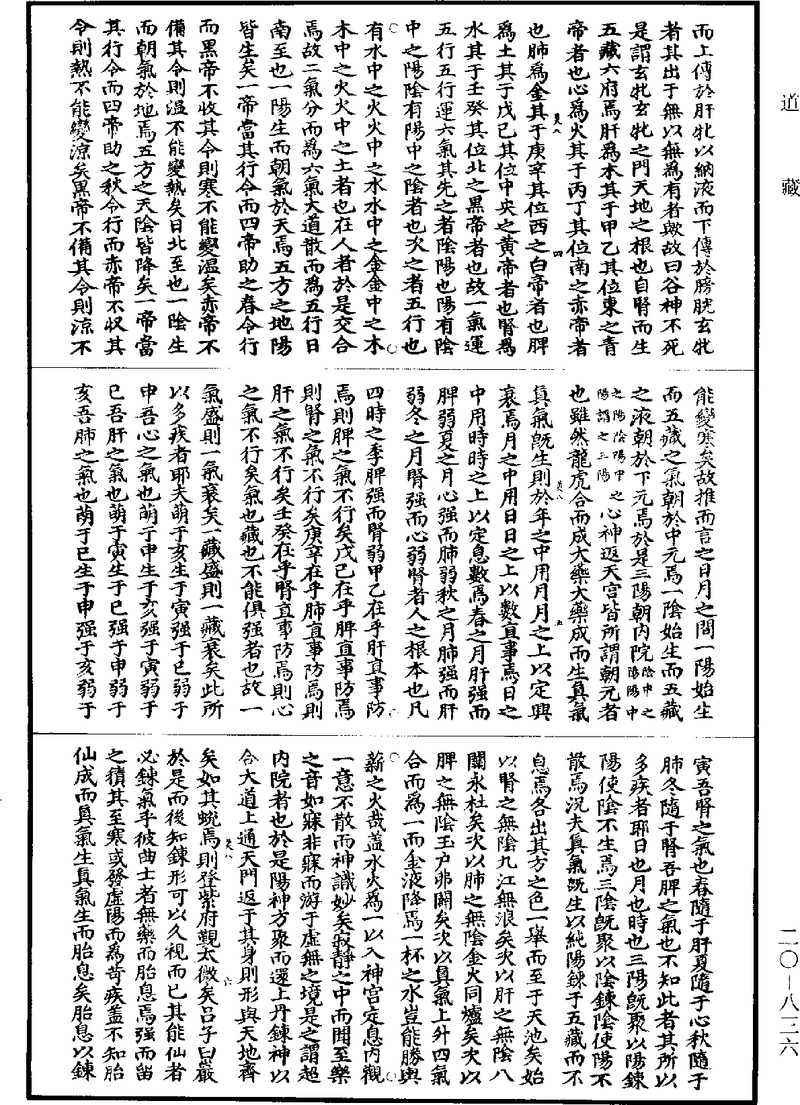 道藏
二〇—八三六
而上傳於肝牝以納液而下傳於膀胱玄牝
者其出于無以無爲有者歟故曰谷神不死
是謂玄牝玄牝之門天地之根也自腎而生
五藏六府焉肝爲木其于甲乙其位東之青
帝者也心爲火其于丙丁其位南之赤帝者
也肺爲金其于庚辛其位西之白帝者也脾
爲土其于戊己其位中央之黄帝者也腎爲
水其于壬癸其位北之黑帝者也故一氣運
五行五行運六氣其先之者陰陽也陽有陰
中之陽陰有陽中之陰者也次之者五行也
有水中之火火中之水水中之金金中之木
木中之火火中之土者也在人者於是交合
焉故二氣分而爲六氣大道散而爲五行日
南至也一陽生而朝氣於天焉五方之地陽
皆生矣一帝當其行令而四帝助之春令行
而黑帝不收其令則寒不能變温矣赤帝不
備其令則温不能變熱矣日北至也一陰生
而朝氣於地焉五方之天陰皆降矣一帝當
其行令而四帝助之秋令行而赤帝不收其
令則熱不能變涼矣黑帝不備其令則涼不
能變寒矣故推而言之日月之間一陽始生
而五藏之氣朝於中元焉一陰始生而五藏
之液朝於下元焉於是三陽朝内院陰中之陽陽中
之陽陰陽中之陽謂之三陽心神返天宫皆所謂朝元者
也雖然龍虎合而成大藥大藥成而生真氣
真氣既生則於年之中用月月之上以定興
衰焉月之中用日日之上以數直事焉日之
中用時時之上以定息數焉春之月肝强而
脾弱夏之月心强而肺弱秋之月肺强而肝
弱冬之月腎强而心弱腎者人之根本也凡
四時之季脾强而腎弱甲乙在乎肝直事防
焉則脾之氣不行矣戊己在乎脾直事防焉
則腎之氣不行矣庚辛在乎肺直事防焉則
肝之氣不行矣壬癸在乎腎直事防焉則心
之氣不行矣氣也藏也不能俱强者也故一
氣盛則一氣衰矣一藏盛則一藏衰矣此所
以多疾者耶夫萌于亥生于寅强于巳弱于
申吾心之氣也萌于申生于亥强于寅弱于
巳吾肝之氣也萌于寅生于巳强于申弱于
亥吾肺之氣也萌于巳生于申强于亥弱于
寅吾腎之氣也春隨于肝夏隨于心秋隨于
肺冬隨于腎吾脾之氣也不知此者其所以
多疾者耶日也月也時也三陽既聚以陽鍊
陽使陰不生焉三陰既聚以陰鍊陰使陽不
散焉況夫真氣既生以純陽鍊于五藏而不
息焉各出其方之色一舉而至于天池矣始
以腎之無陰九江無浪矣次以肝之無陰八
關永杜矣次以肺之無陰金火同爐矣次以
脾之無陰玉户弗關矣次以真氣上升四氣
合而爲一而金液降焉一杯之水豈能勝輿
薪之火哉蓋水火爲一以入神宫定息内觀
一意不散而神識妙矣寂静之中而聞至樂
之音如寐非寐而游于虚無之境是之謂超
内院者也於是陽神方聚而還上丹鍊神以
合大道上通天門返于其身則形與天地齊
矣如其蜕焉則登紫府觀太微矣吕子曰嚴
於是而後知鍊形可以久視而已其能仙者
必鍊氣乎彼曲士者無藥而胎息焉强而留
之積其至寒或發虚陽而爲苛疾蓋不知胎
仙成而真氣生真氣生而胎息矣胎息以鍊
美八
四
美八
五
美八
六